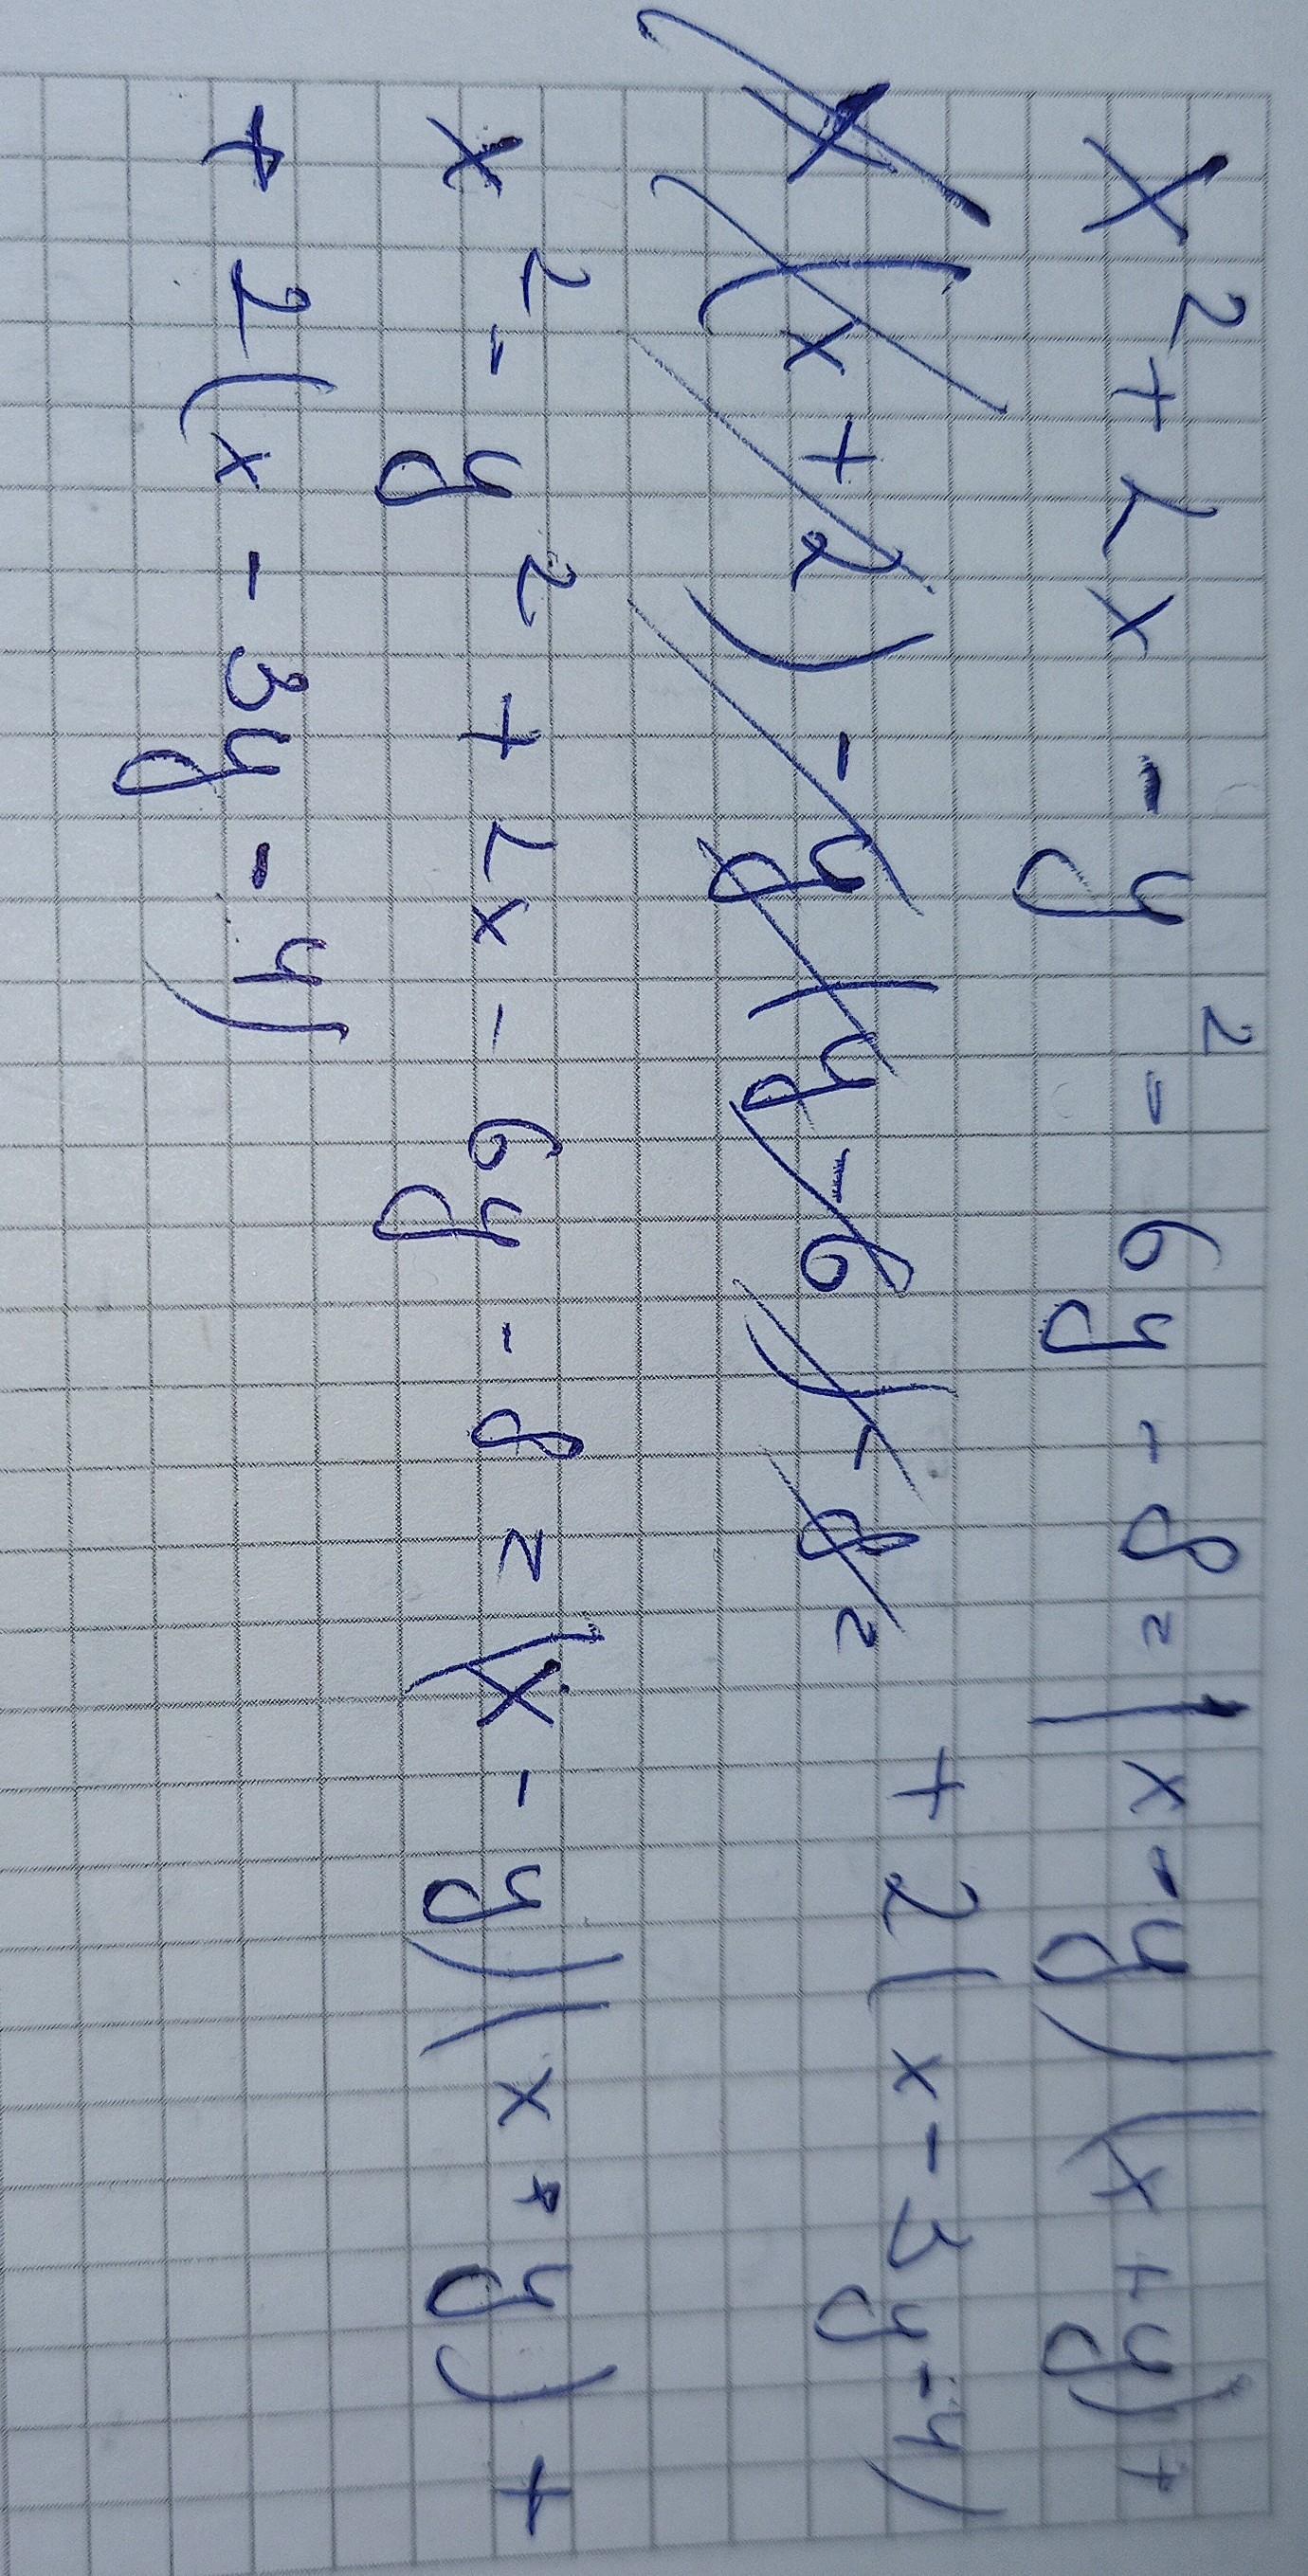 x² + 2x - y² - 6y - 8 = (x - y)(x + y) +
+ 2(x - 3y - 4)
x(x + 2) - y(y - 6) - 8 =
x² - y² + 2x - 6y - 8 = (x - y)(x + y) +
+ 2(x - 3y - 4)